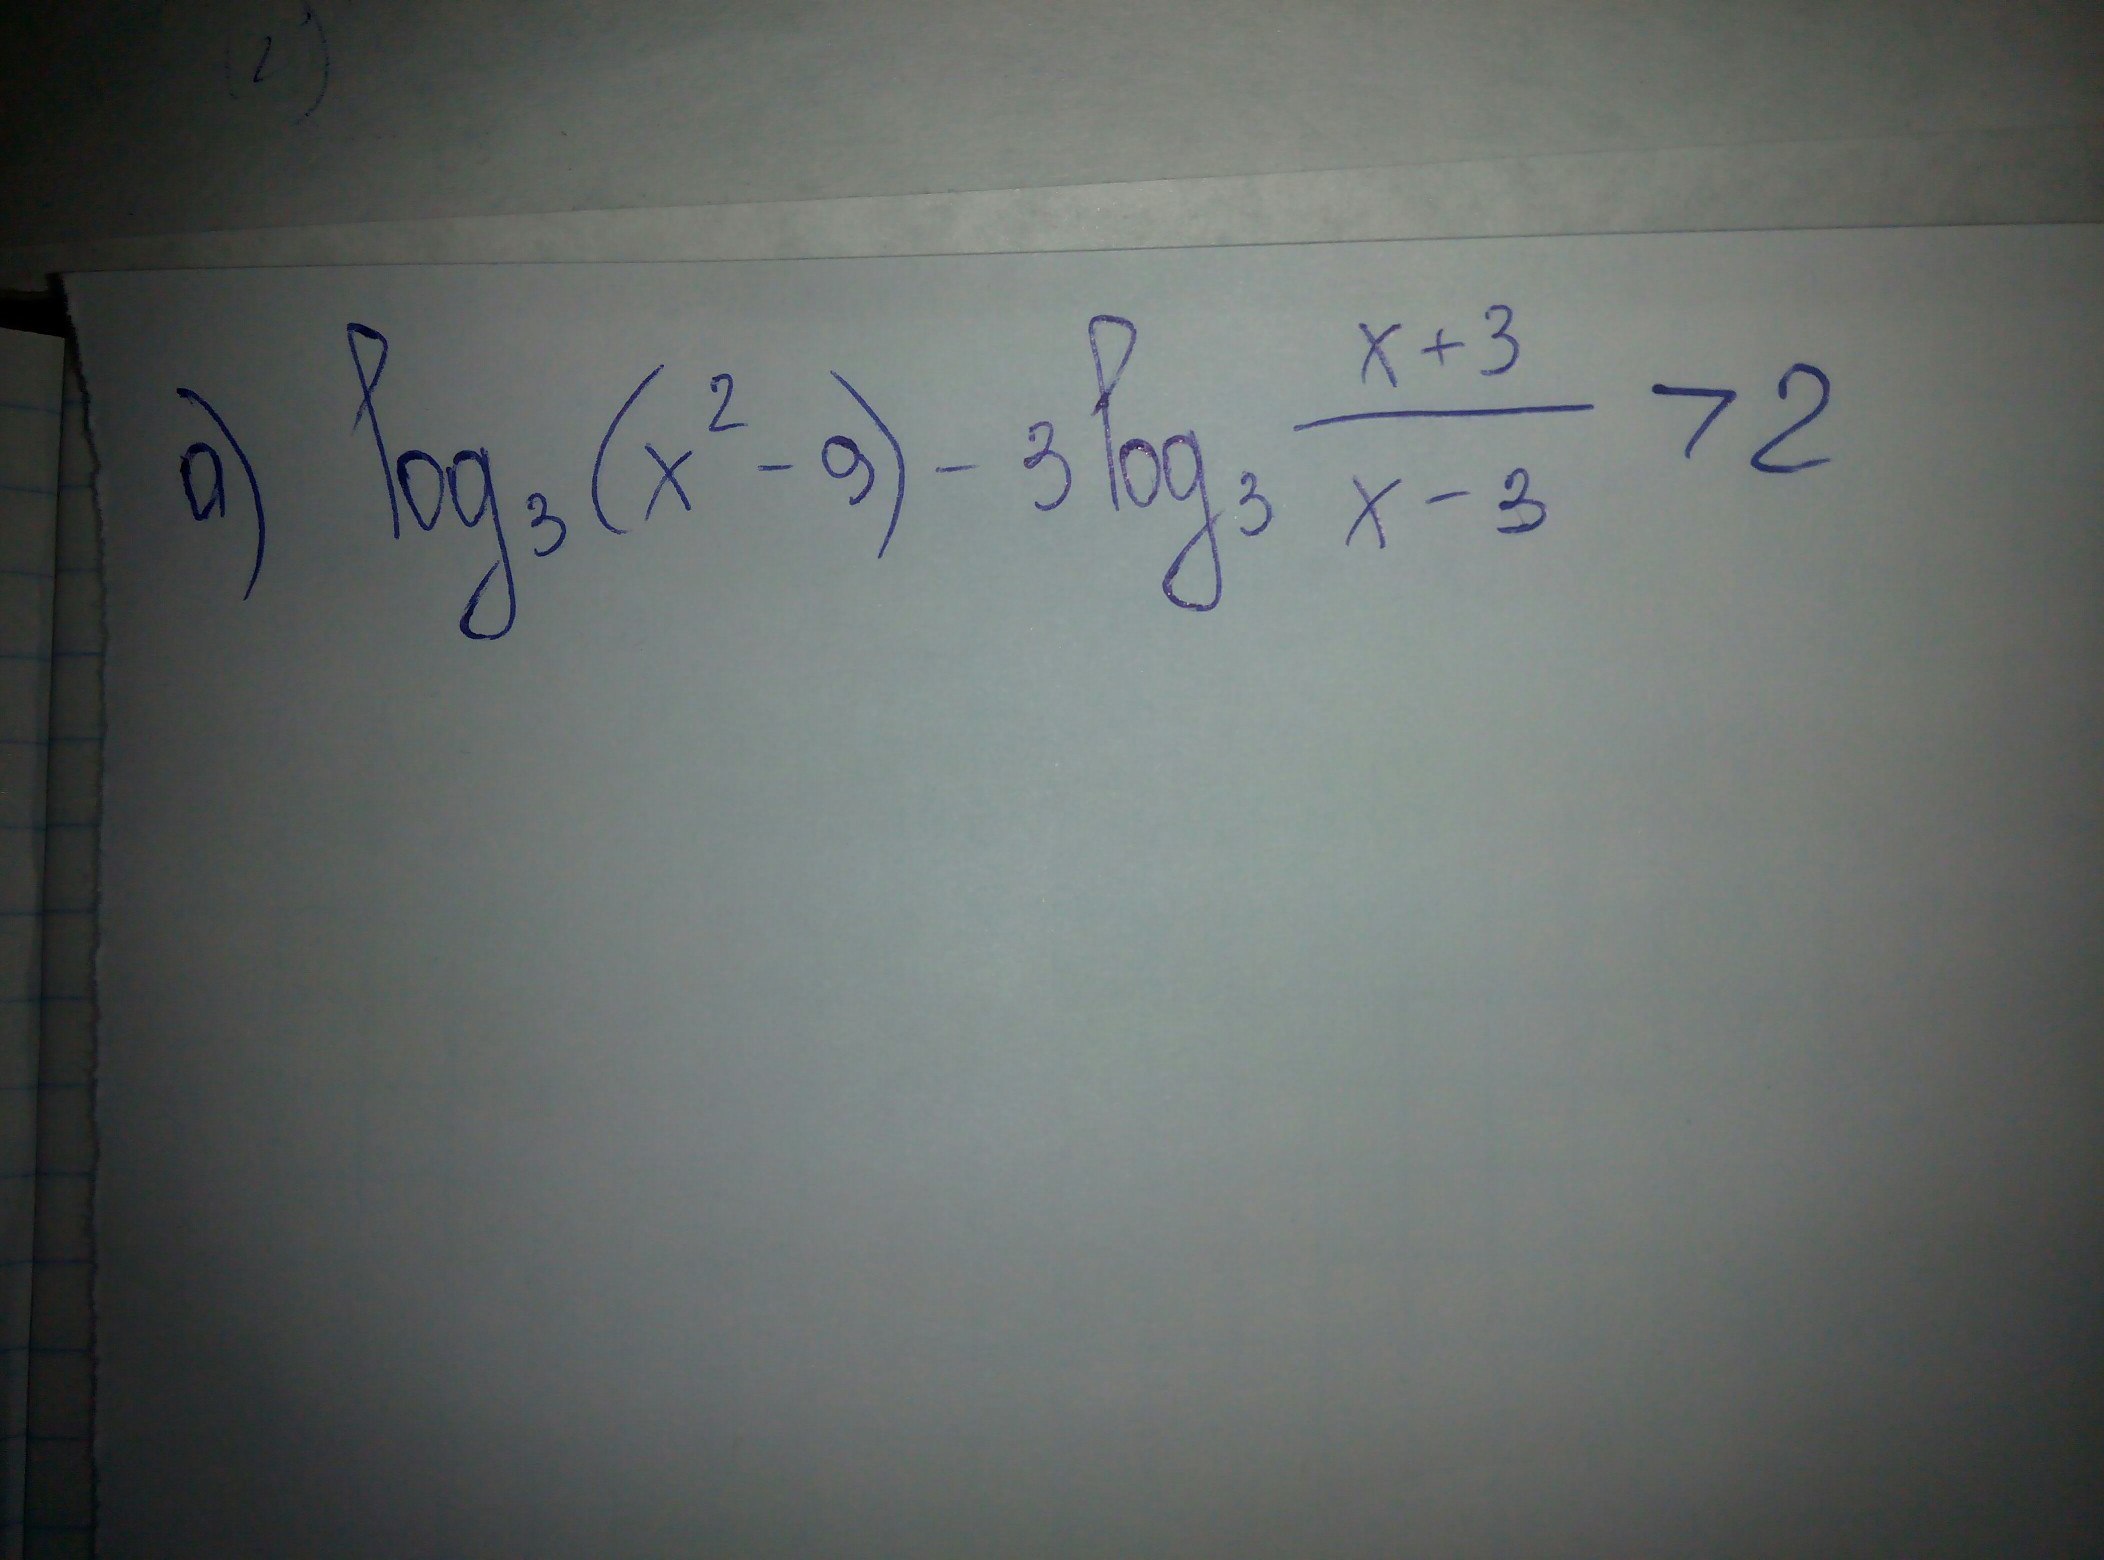 2)
а) log₃(x² - 9) - 3 log₃ \frac{x + 3}{x - 3} > 2